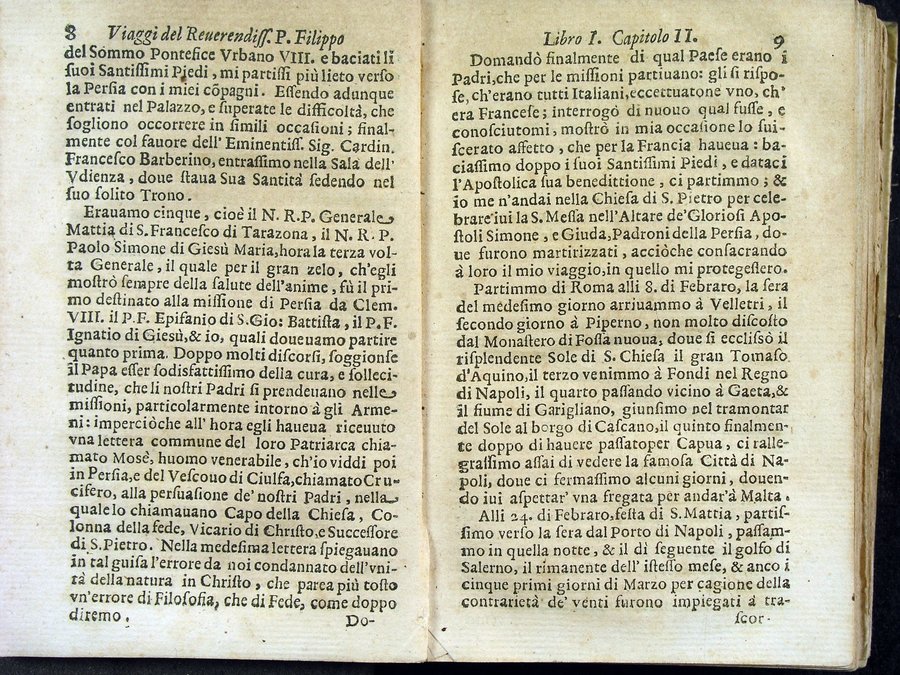 8 Viaggi del Reuerendiſſ. P. Filippo
del Sommo Pontefice Vrbano VIII. e baciati li
ſuoi Santiſſimi Piedi, mi partiſſi più lieto verſo
la Perſia con i miei cõpagni. Eſſendo adunque
entrati nel Palazzo, e ſuperate le difficoltà, che
ſogliono occorrere in ſimili occaſioni; final-
mente col fauore dell' Eminentiſſ. Sig. Cardin.
Franceſco Barberino, entraſſimo nella Sala dell'
Vdienza, doue ſtaua Sua Santità ſedendo nel
ſuo ſolito Trono.
Erauamo cinque, cioè il N. R.P. Generale
Mattia di S. Franceſco di Tarazona, il N. R. P.
Paolo Simone di Gieſù Maria, hora la terza vol-
ta Generale, il quale per il gran zelo, ch'egli
moſtrò ſempre della ſalute dell'anime, fù il pri-
mo deſtinato alla miſſione di Perſia da Clem.
VIII. il P. F. Epifanio di S. Gio: Battiſta, il P. F.
Ignatio di Gieſù, & io, quali doueuamo partire
quanto prima. Doppo molti diſcorſi, ſoggionſe
il Papa eſſer ſodisfattiſſimo della cura, e ſolleci-
tudine, che li noſtri Padri ſi prendeuano nelle
miſſioni, particolarmente intorno à gli Arme-
ni: imperciòche all' hora egli haueua riceuuto
vna lettera commune del loro Patriarca chia-
mato Mosè, huomo venerabile, ch'io viddi poi
in Perſia, e del Veſcouo di Ciulfa, chiamato Cru-
cifero, alla perſuaſione de' noſtri Padri, nella
quale lo chiamauano Capo della Chieſa, Co-
lonna della fede, Vicario di Chriſto, e Succeſſore
di S. Pietro. Nella medeſima lettera ſpiegauano
in tal guiſa l'errore da noi condannato dell'vni-
tà della natura in Chriſto, che parea più toſto
vn'errore di Filoſofia, che di Fede, come doppo
diremo.
Do-
Libro I. Capitolo II. 9
Domandò finalmente di qual Paeſe erano i
Padri, che per le miſſioni partiuano: gli ſi riſpo-
ſe, ch'erano tutti Italiani, eccettuatone vno, ch'
era Franceſe; interrogò di nuouo qual fuſſe, e
conoſciutomi, moſtrò in mia occaſione lo ſui-
ſcerato affetto, che per la Francia haueua: ba-
ciaſſimo doppo i ſuoi Santiſſimi Piedi, e dataci
l'Apoſtolica ſua benedittione, ci partimmo; &
io me n'andai nella Chieſa di S. Pietro per cele-
brare'iui la S. Meſſa nell'Altare de'Glorioſi Apo-
ſtoli Simone, e Giuda, Padroni della Perſia, do-
ue furono martirizzati, acciòche conſacrando
à loro il mio viaggio, in quello mi protegeſſero.
Partimmo di Roma alli 8. di Febraro, la ſera
del medeſimo giorno arriuammo à Velletri, il
ſecondo giorno à Piperno, non molto diſcoſto
dal Monaſtero di Foſſa nuoua, doue ſi eccliſsò il
riſplendente Sole di S. Chieſa il gran Tomaſo
d'Aquino, il terzo venimmo à Fondi nel Regno
di Napoli, il quarto paſſando vicino à Gaeta, &
il fiume di Garigliano, giunſimo nel tramontar
del Sole al borgo di Caſcano, il quinto finalmen-
te doppo di hauere paſſatoper Capua, ci ralle-
graſſimo aſſai di vedere la famoſa Città di Na-
poli, doue ci fermaſſimo alcuni giorni, douen-
do iui aſpettar' vna fregata per andar'à Malta.
Alli 24. di Febraro, feſta di S. Mattia, partiſ-
ſimo verſo la ſera dal Porto di Napoli, paſſam-
mo in quella notte, & il di ſeguente il golfo di
Salerno, il rimanente dell' iſteſſo meſe, & anco i
cinque primi giorni di Marzo per cagione della
contrarietà de' venti furono impiegati à tra-
ſcor-